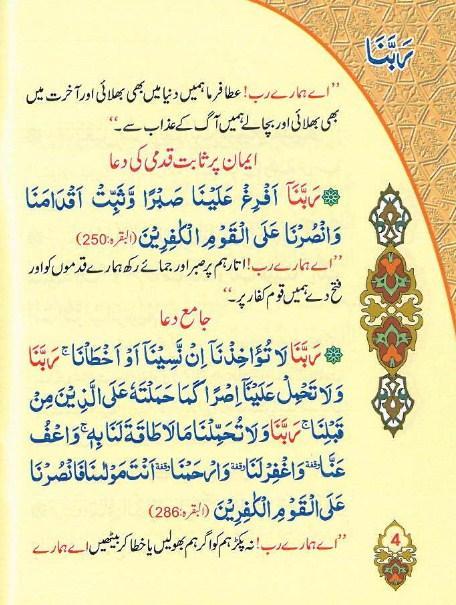 رَبَّنَا
’’اے ہمارے رب! عطا فرما ہمیں دنیا میں بھی بھلائی اور آخرت میں
بھی بھلائی اور بچا لے ہمیں آگ کے عذاب سے۔‘‘
ایمان پر ثابت قدمی کی دعا
رَبَّنَآ اَفْرِغْ عَلَيْنَا صَبْرًا وَّثَبِّتْ اَقْدَامَنَا
وَانْصُرْنَا عَلَى الْقَوْمِ الْكٰفِرِيْنَ (البقرہ:250)
’’اے ہمارے رب! اتار ہم پر صبر اور جمائے رکھ ہمارے قدموں کو اور
فتح دے ہمیں قوم کفار پر۔‘‘
جامع دعا
رَبَّنَا لَا تُؤَاخِذْنَآ اِنْ نَّسِيْنَآ اَوْ اَخْطَاْنَا ۚ رَبَّنَا
وَلَا تَحْمِلْ عَلَيْنَآ اِصْرًا كَمَا حَمَلْتَهٗ عَلَى الَّذِيْنَ مِنْ
قَبْلِنَا ۚ رَبَّنَا وَلَا تُحَمِّلْنَا مَا لَا طَاقَةَ لَنَا بِهٖ ۚ وَاعْفُ
عَنَّا ۥوقفة وَاغْفِرْ لَنَا ۥوقفة وَارْحَمْنَا ۥوقفة اَنْتَ مَوْلٰىنَا فَانْصُرْنَا
عَلَى الْقَوْمِ الْكٰفِرِيْنَ (البقرہ:286)
’’اے ہمارے رب! نہ پکڑ ہم کو اگر ہم بھولیں یا خطا کر بیٹھیں اے ہمارے
4